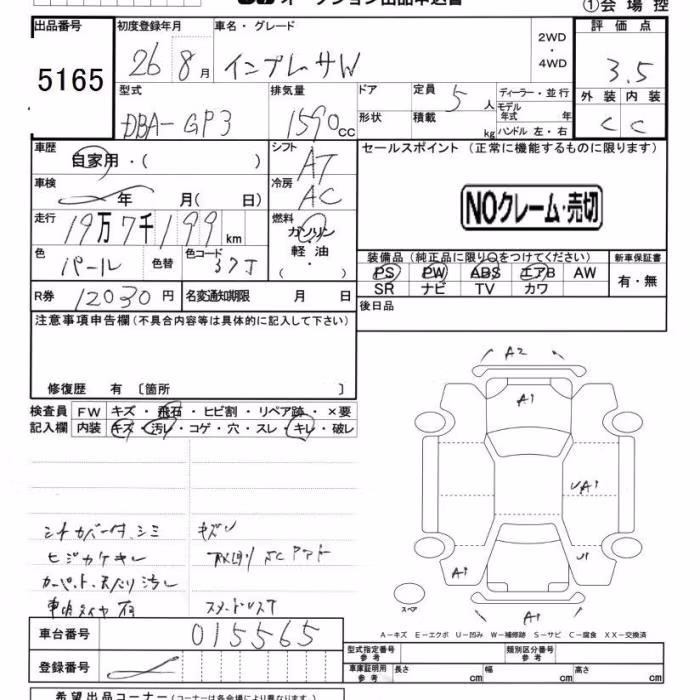 オークション出品申込書
①会場控
出品番号
5165
初度登録年月
26年 8月
車名・グレード
インプレッサW
2WD
・
4WD
評価点
3.5
外装 内装
C C
型式
DBA-GP3
排気量
1590cc
ドア
形状
定員
5人
積載
kg
ディーラー・並行
モデル年式 年
ハンドル 左・右
車歴
自家用・( )
シフト
AT
セールスポイント (正常に機能するものに限ります)
NOクレーム・売切
車検
年 月( 日)
冷房
AC
走行
19万7千199km
燃料
ガソリン
軽油
( ・ )
色
パール
色替
色コード
37J
装備品(純正品に限り○をつけてください)
PS PW ABS エアB AW
SR ナビ TV カワ
新車保証書
有・無
R券
12030円
名変通知期限 月 日
後日品
注意事項申告欄(不具合内容等は具体的に記入して下さい)
修復歴 有 〔箇所 〕
検査員
記入欄
FW キズ・飛石・ヒビ割・リペア跡・×要
内装 キズ・汚レ・コゲ・穴・スレ・キレ・破レ
A2
A1
UA1
U1
A1
A1
スペア
シートカバー付、シミ
キズU
ヒジカケキレ
カーペット、天バリ汚レ
A-キズ E-エクボ U-凹み W-補修跡 S-サビ C-腐食 XX-交換済
車台番号
015565
登録番号
型式指定番号
参考
類別区分番号
参考
車庫証明用
参考
長さ cm 幅 cm 高さ cm
希望出品コーナー(コーナーは各会場により異なります)